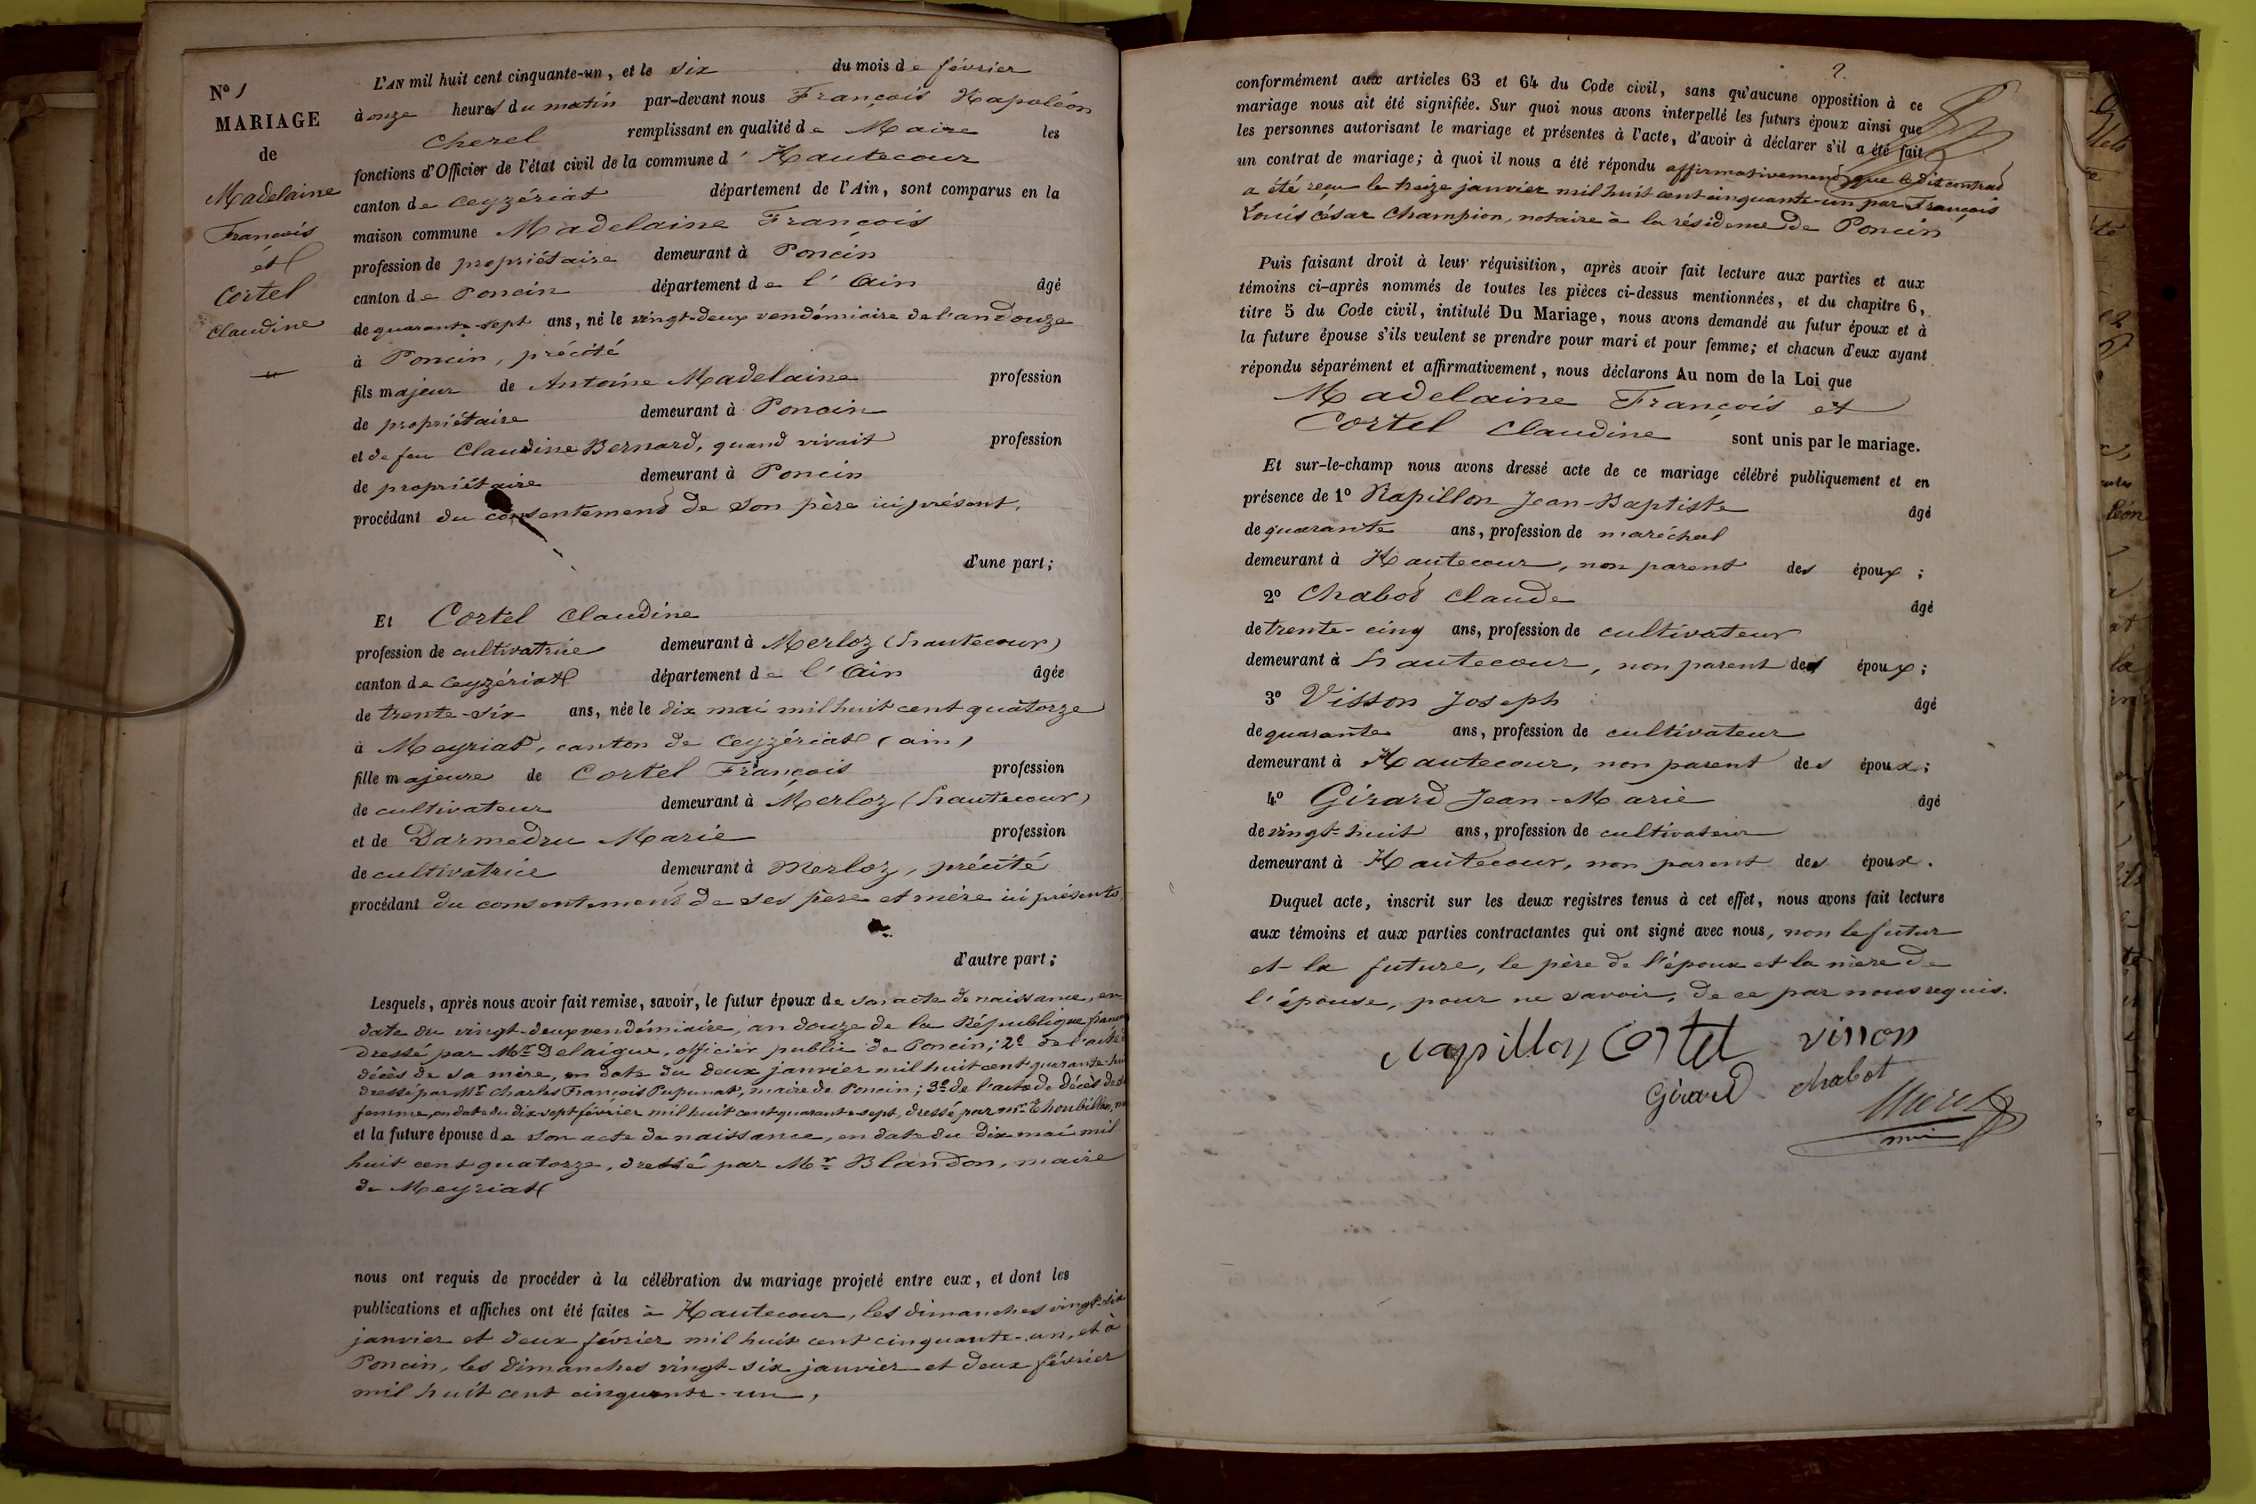 N° 1
MARIAGE
de
Madelaine
François
et
Cortel
Claudine
L'AN mil huit cent cinquante-un, et le six du mois de février
à onze heures du matin par-devant nous François Napoléon
Cherel remplissant en qualité de Maire les
fonctions d'Officier de l'état civil de la commune d'Hautecour
canton de Ceyzériat département de l'Ain, sont comparus en la
maison commune Madelaine François
profession de propriétaire demeurant à Poncin
canton de Poncin département de l'Ain âgé
de quarante-sept ans, né le vingt-deux vendémiaire de l'an douze
à Poncin, précité
fils majeur de Antoine Madelaine profession
de propriétaire demeurant à Poncin
et de feu Claudine Bernard, quand vivait profession
de propriétaire demeurant à Poncin
procédant du consentement de son père ici présent.
d'une part;
Et Cortel Claudine
profession de cultivatrice demeurant à Merloz (hautecour)
canton de Ceyzériat département de l'Ain âgée
de trente-six ans, née le dix mai mil huit cent quatorze
à Meyriat, canton de Ceyzériat (ain)
fille majeure de Cortel François profession
de cultivateur demeurant à Merloz (hautecour)
et de Darmedru Marie profession
de cultivatrice demeurant à Merloz, précité
procédant du consentement de ses père et mère ici présents,
d'autre part;
Lesquels, après nous avoir fait remise, savoir, le futur époux de son acte de naissance, en
date du vingt-deux vendémiaire, an douze de la République
dressé par Mr Delaigue, officier public de Poncin; 2° de l'acte
décès de sa mère, en date du deux janvier mil huit cent quarante
dressé par Mr Charles François Pupunat, maire de Poncin; 3° de l'acte de décès de
femme, en date du dix-sept février mil huit cent quarante-sept, dressé par mr Thoubillon,
et la future épouse de son acte de naissance, en date du dix mai mil
huit cent quatorze, dressé par Mr Blandon, maire
de Meyriat
nous ont requis de procéder à la célébration du mariage projeté entre eux, et dont les
publications et affiches ont été faites à Hautecour, les dimanches vingt-six
janvier et deux février mil huit cent cinquante-un, et à
Poncin, les dimanches vingt-six janvier et deux février
mil huit cent cinquante-un,
2.
conformément aux articles 63 et 64 du Code civil, sans qu'aucune opposition à ce
mariage nous ait été signifiée. Sur quoi nous avons interpellé les futurs époux ainsi que
les personnes autorisant le mariage et présentes à l'acte, d'avoir à déclarer s'il a été fait
un contrat de mariage; à quoi il nous a été répondu affirmativement, que ledit contrat
a été reçu le treize janvier mil huit cent cinquante-un par François
Louis César Champion, notaire à la résidence de Poncin
Puis faisant droit à leur réquisition, après avoir fait lecture aux parties et aux
témoins ci-après nommés de toutes les pièces ci-dessus mentionnées, et du chapitre 6,
titre 5 du Code civil, intitulé Du Mariage, nous avons demandé au futur époux et à
la future épouse s'ils veulent se prendre pour mari et pour femme; et chacun d'eux ayant
répondu séparément et affirmativement, nous déclarons Au nom de la Loi que
Madelaine François et
Cortel Claudine sont unis par le mariage.
Et sur-le-champ nous avons dressé acte de ce mariage célébré publiquement et en
présence de 1° Rapillon Jean-Baptiste âgé
de quarante ans, profession de maréchal
demeurant à Hautecour, non parent des époux;
2° Chabot Claude âgé
de trente-cinq ans, profession de cultivateur
demeurant à hautecour, non parent des époux;
3° Visson Joseph âgé
de quarante ans, profession de cultivateur
demeurant à Hautecour, non parent des époux;
4° Girard Jean-Marie âgé
de vingt-huit ans, profession de cultivateur
demeurant à Hautecour, non parent des époux.
Duquel acte, inscrit sur les deux registres tenus à cet effet, nous avons fait lecture
aux témoins et aux parties contractantes qui ont signé avec nous, non le futur
et la future, le père de l'époux et la mère de
l'épouse, pour ne savoir, de ce par nous requis.
rapillon Cortel visson
Girard chabot